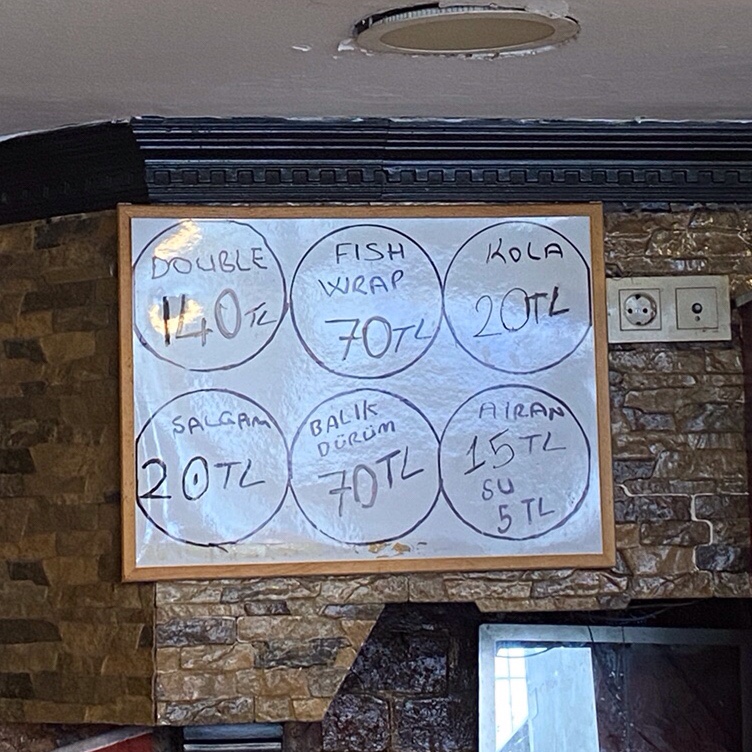 DOUBLE
140 TL
FISH
WRAP
70 TL
KOLA
20 TL
SALGAM
20 TL
BALIK
DÜRÜM
70 TL
AIRAN
15 TL
SU
5 TL